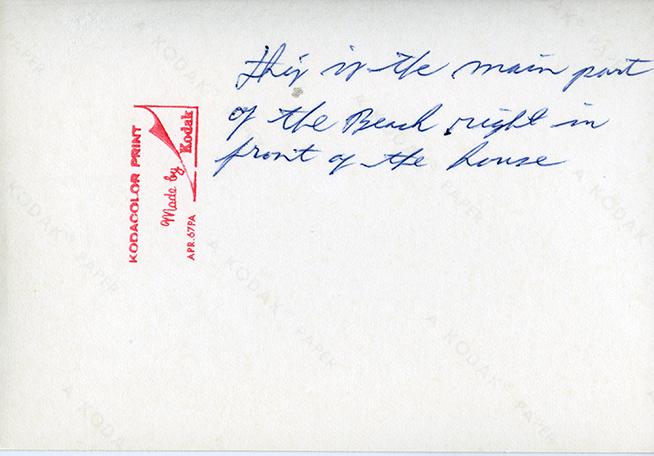 This is the main part
of the Beach right in
front of the house
KODACOLOR PRINT
Made by Kodak
APR. 67PA
A KODAK PAPER
A KODAK PAPER
A KODAK PAPER
A KODAK PAPER
A KODAK PAPER